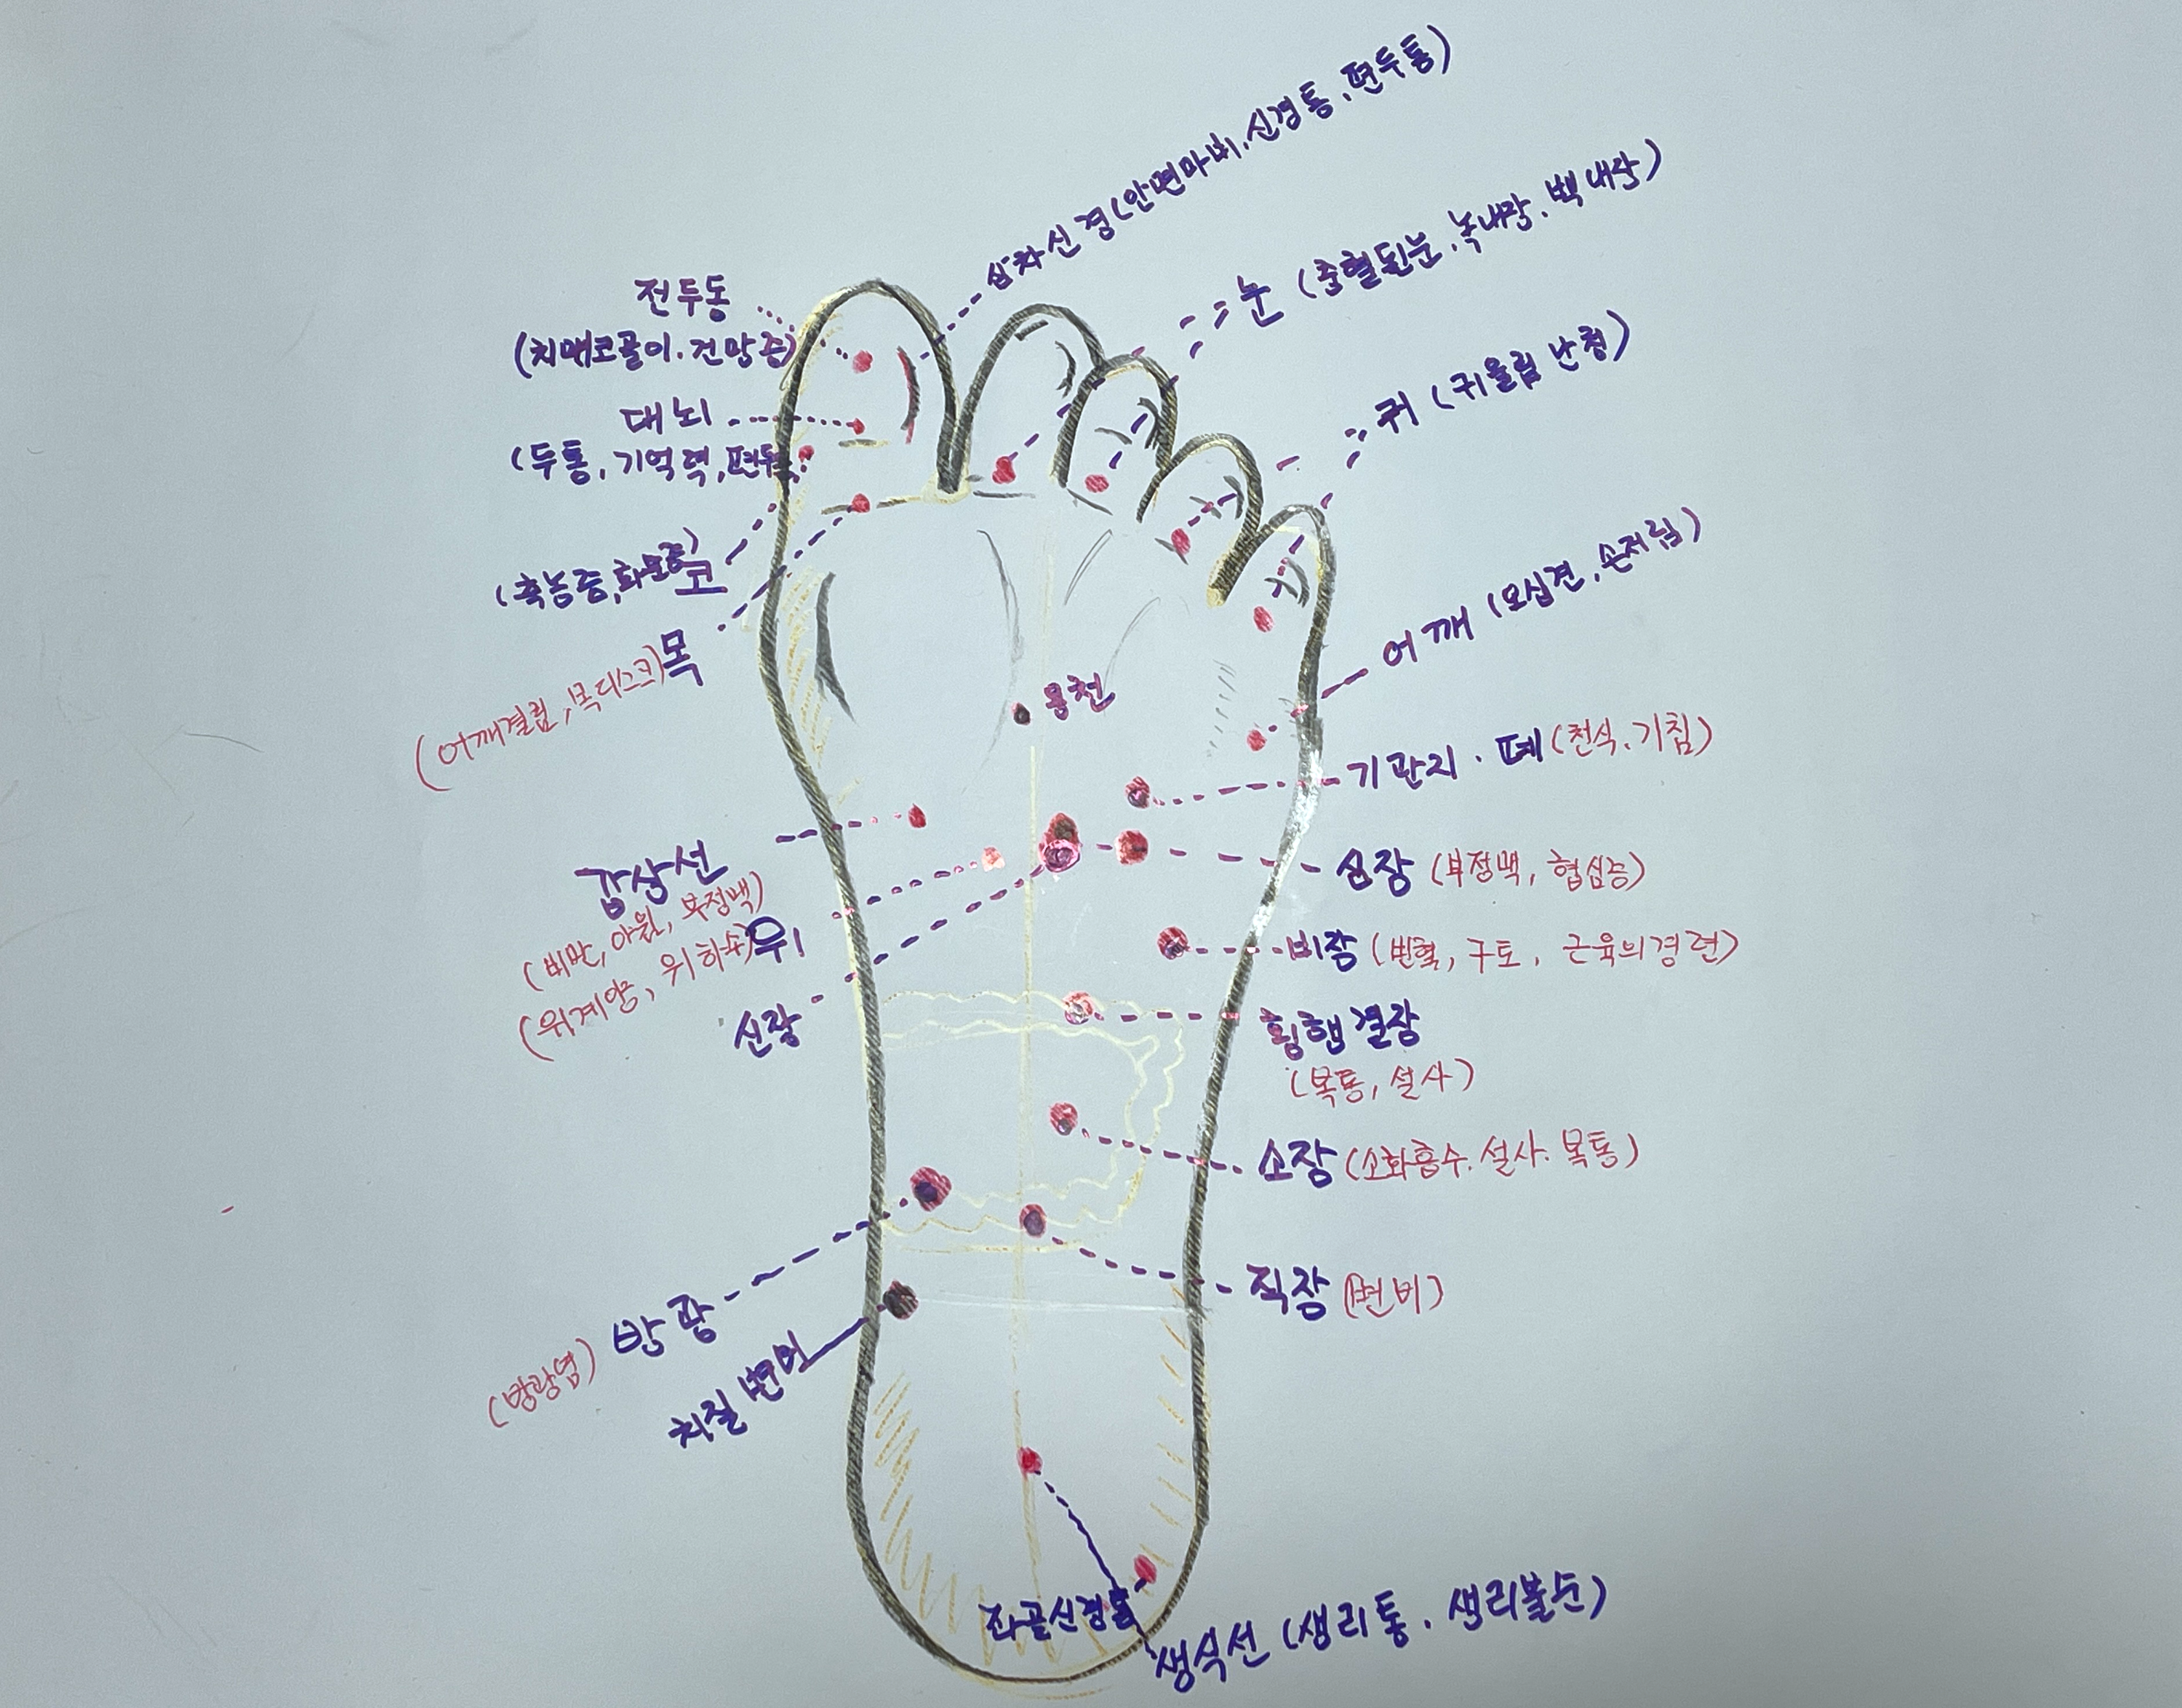 삼차신경 (안면마비. 신경통. 편두통)
눈 (충혈된눈. 녹내장. 백내장)
전두동
(치매코골이. 건망증)
귀 (귀울림 난청)
대뇌
(두통, 기억력, 편두통
코
(축농증,
어깨 (오십견. 손저림)
목
(어깨결림, 목디스크)
용천
기관지 · 폐 (천식. 기침)
갑상선
(비만, 야윔, 부정맥)
심장 (부정맥, 협심증)
위
(위궤양, 위하수)
비장 (빈혈, 구토, 근육의경련)
신장
횡행결장
(복통, 설사)
소장 (소화흡수. 설사. 복통)
직장 (변비)
방광
(방광염)
치질 변비
좌골신경통
생식선 (생리통. 생리불순)